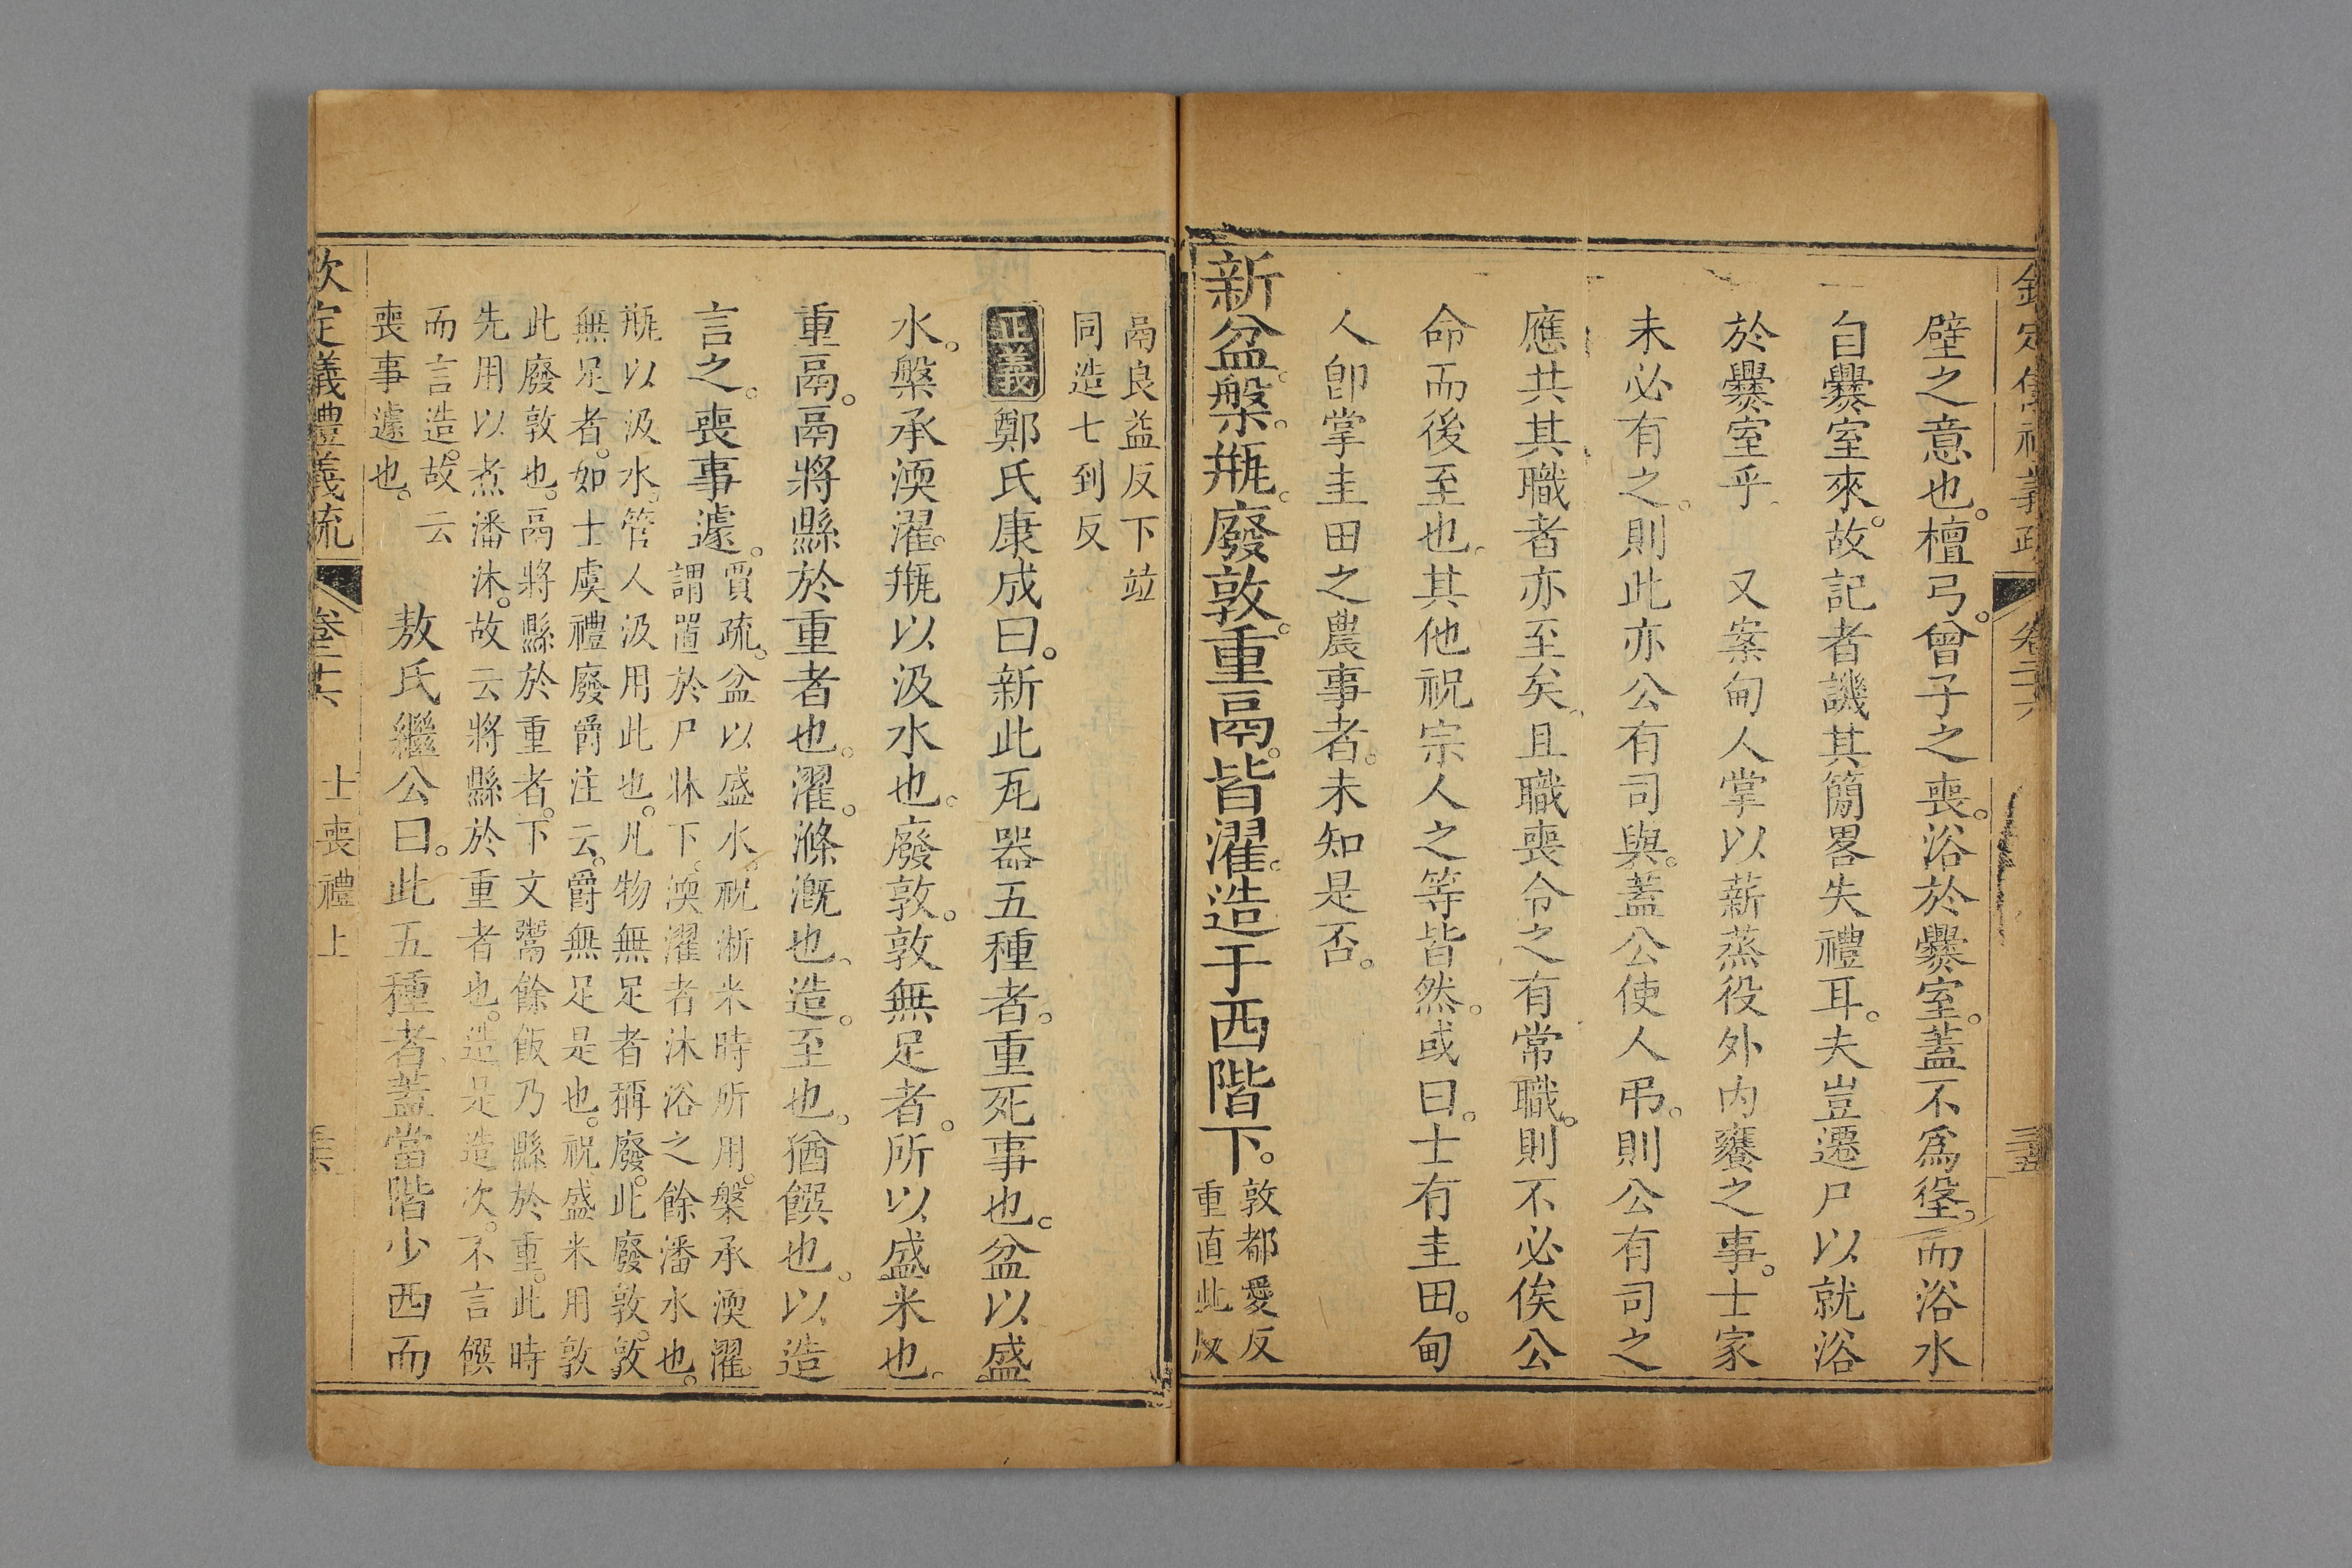 欽定儀禮義疏 卷二十六 三五
壁之意也。檀弓。曾子之喪。浴於爨室。蓋不爲垼。而浴水
自爨室來。故記者譏其簡畧失禮耳。夫豈遷尸以就浴
於爨室乎。 又案甸人掌以薪蒸役外內饔之事。士家
未必有之。則此亦公有司與。蓋公使人弔。則公有司之
應共其職者亦至矣。且職喪令之有常職。則不必俟公
命而後至也。其他祝宗人之等皆然。或曰。士有圭田。甸
人卽掌圭田之農事者。未知是否。
新盆。槃。甁。廢敦。重鬲。皆濯。造于西階下。
敦都愛反
重直此
鬲良益反下竝
同造七到反
正義 鄭氏康成曰。新此瓦器五種者。重死事也。盆以盛
水。槃承渜濯。甁以汲水也。廢敦。敦無足者。所以盛米也。
重鬲。鬲將縣於重者也。濯。滌漑也。造。至也。猶饌也。以造
言之。喪事遽。
賈疏。盆以盛水。祝淅米時所用。槃承渜濯。
謂置於尸牀下。渜濯者沐浴之餘潘水也。
甁以汲水。管人汲用此也。凡物無足者稱廢。此廢敦。敦
無足者。如士虞禮廢爵注云。爵無足是也。祝盛米用敦
此廢敦也。鬲將縣於重者。下文鬻餘飯乃縣於重。此時
先用以煮潘沐。故云將縣於重者也。造是造次。不言饌
而言造。故云
喪事遽也。
敖氏繼公曰。此五種者。蓋當階少西而
欽定儀禮義疏 卷二十六 士喪禮上